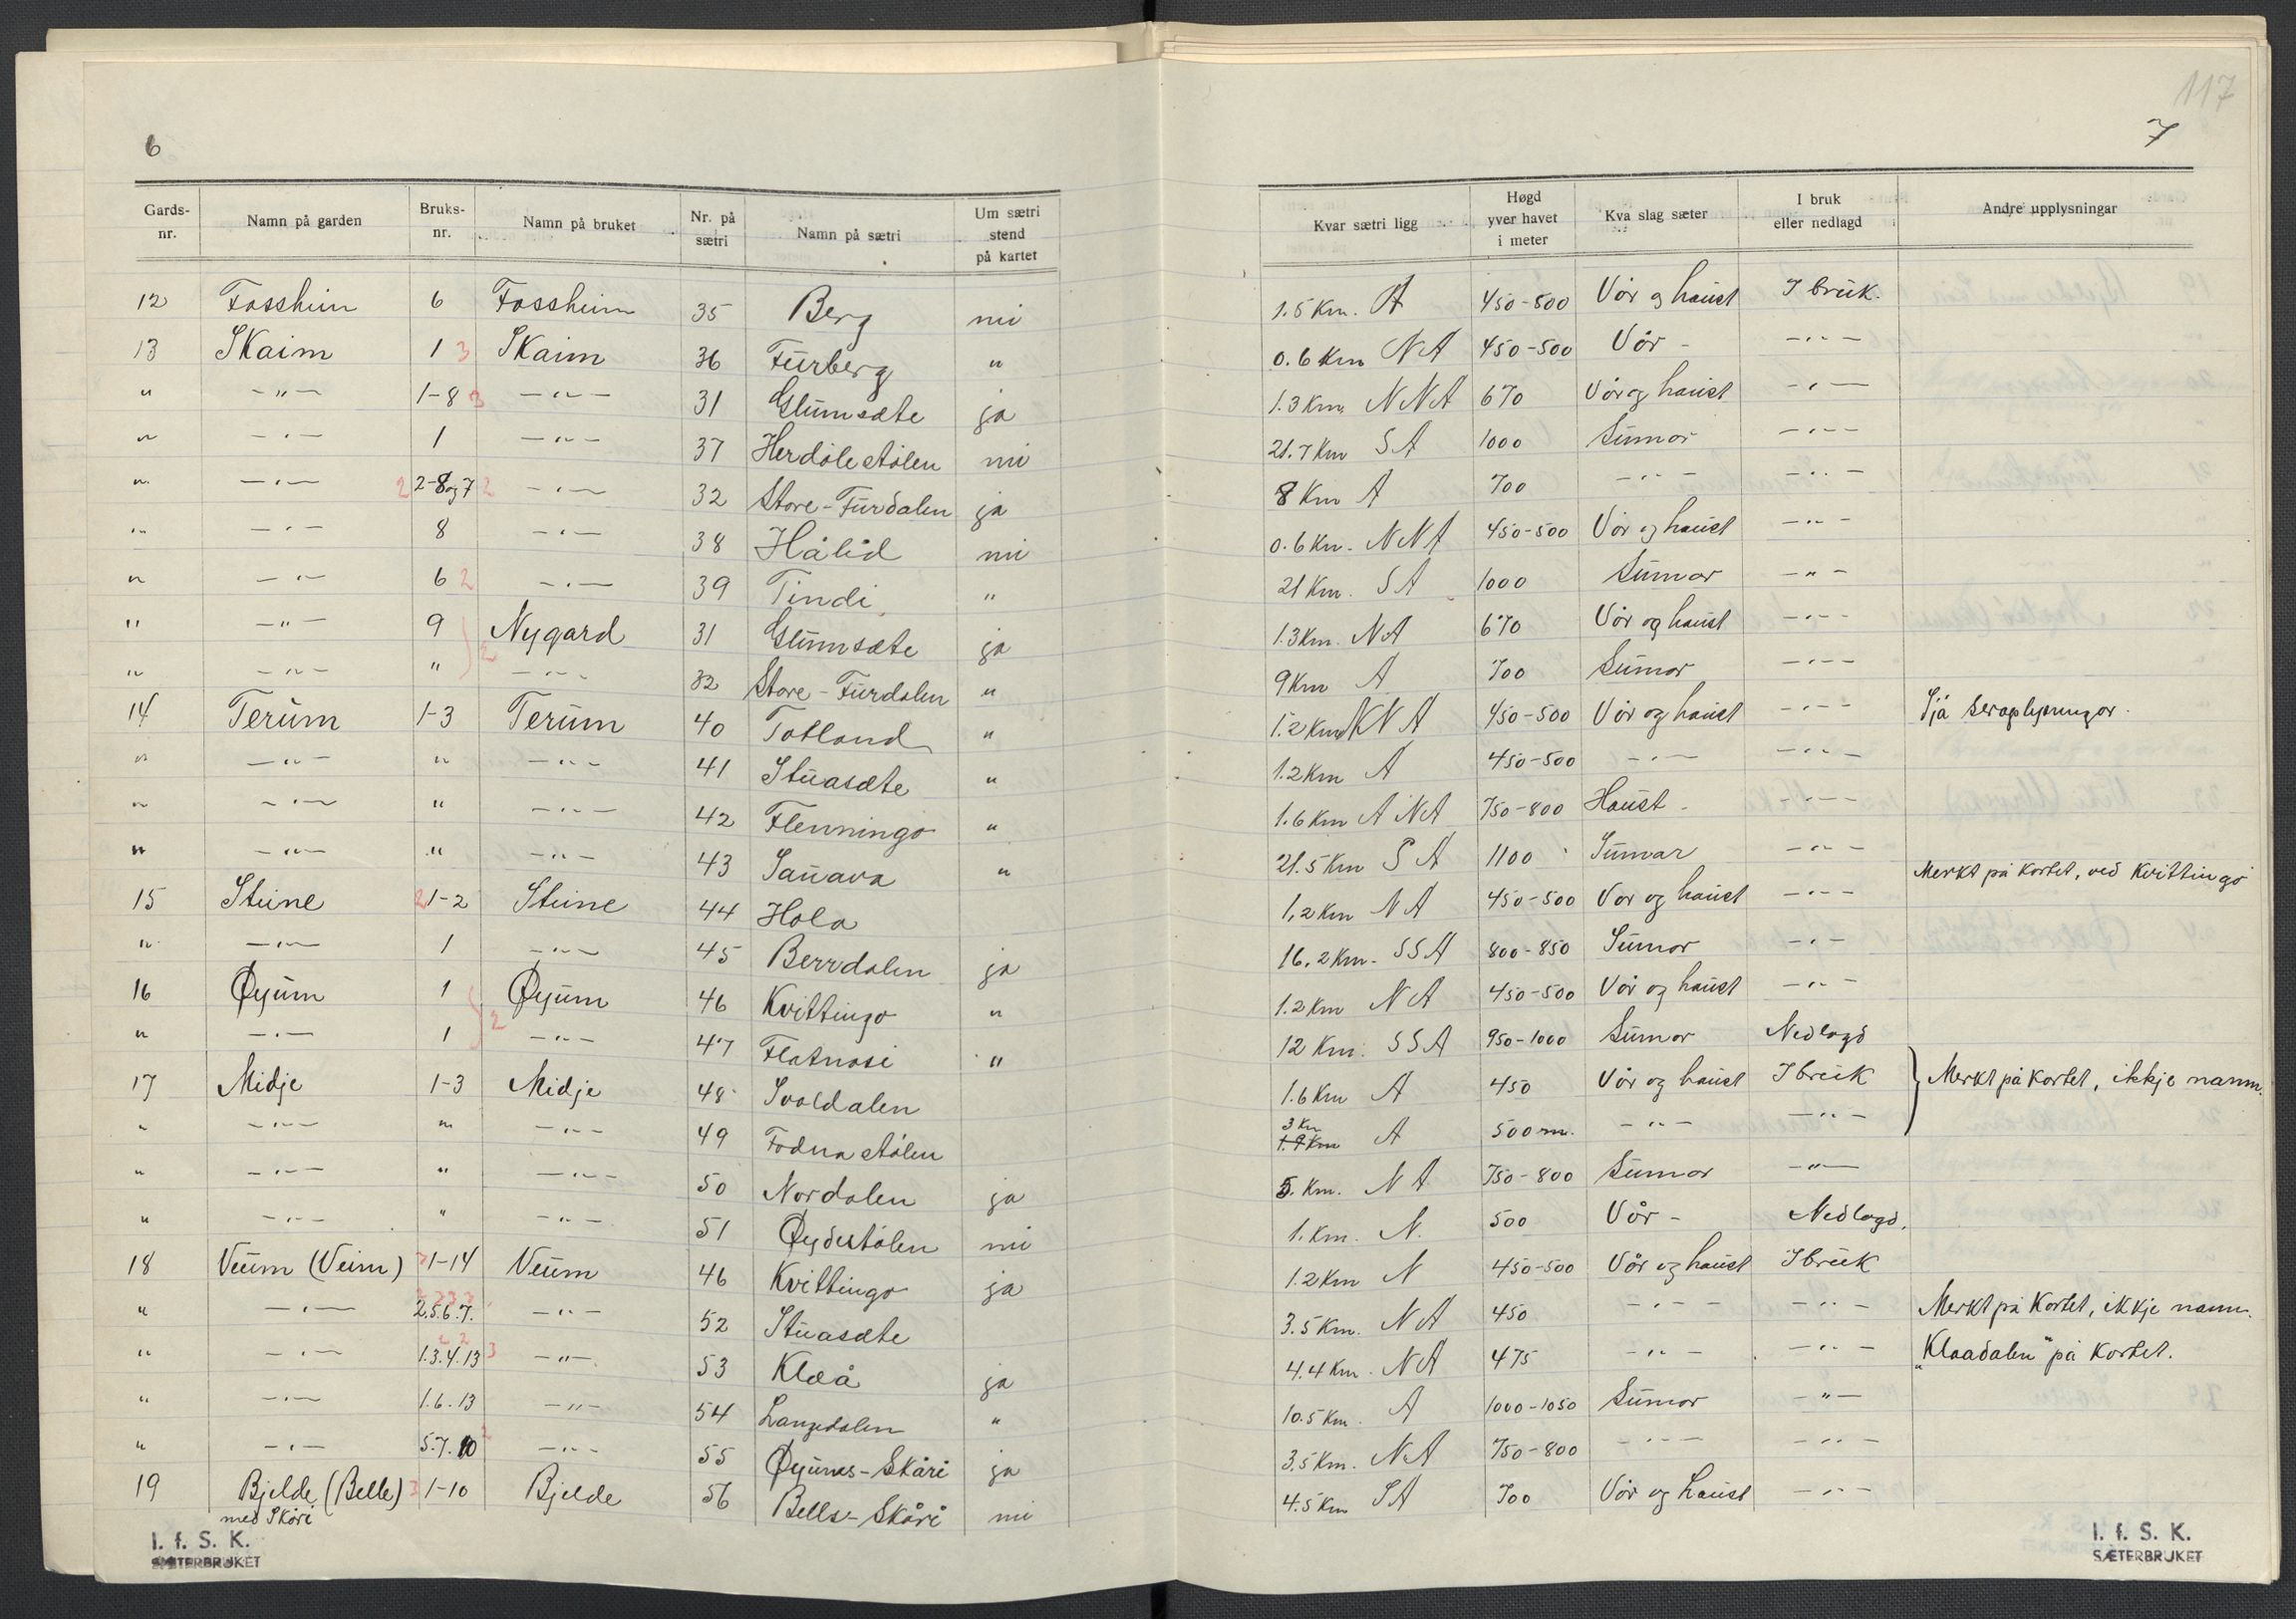 117
6
7
Gards-nr. Namn på garden Bruks-nr. Namn på bruket Nr. på sætri Namn på sætri Um sætri stend på kartet Kvar sætri ligg Høgd yver havet i meter Kva slag sæter I bruk eller nedlagd Andre upplysningar
12 Fossheim 6 Fossheim 35 Berg nei 1.5 Km. A 450-500 Vår og haust I bruk.
13 Skaim 1 3 Skaim 36 Furberg " 0.6 Km NA 450-500 Vår - -"-
" -"- 1-8 3 -"- 31 Glumsæte ja 1.3 Km NNA 670 Vår og haust -"-
" -"- 1 -"- 37 Herdølestølen nei 21.7 Km SA 1000 Sumar -"-
" -"- 2 2-8og7 2 -"- 32 Store-Furdalen ja 8 Km A 700 -"- -"-
" -"- 8 -"- 38 Hålid nei 0.6 Km. NNA 450-500 Vår og haust -"-
" -"- 6 2 -"- 39 Tindi " 21 Km. SA 1000 Sumar -"-
" -"- 9 Nygard 31 Glumsæte ja 1.3 Km. NA 670 Vår og haust -"-
" -"- " 2 -"- 32 Store-Furdalen " 9 Km A 700 Sumar -"-
14 Terum 1-3 Terum 40 Totland " 1.2 Km NA 450-500 Vår og haust -"- Sjå serupplysningar.
" -"- " -"- 41 Stuasæte " 1.2 Km A 450-500 -"- -"-
" -"- " -"- 42 Flenningo " 1.6 Km ANA 750-800 Haust - -"-
" -"- " -"- 43 Sauava " 21.5 Km SA 1100 Sumar -"-
15 Steine 2 1-2 Steine 44 Hola 1,2 Km NA 450-500 Vår og haust -"- Merkt på kortet, ved Kvittingo
" -"- 1 -"- 45 Berrdalen ja 16.2 Km. SSA 800-850 Sumar -"-
16 Øyum 1 Øyum 46 Kvittingo " 1.2 Km NA 450-500 Vår og haust -"-
" -"- 1 2 -"- 47 Flatnosi " 12 Km. SSA 950-1000 Sumar Nedlagd
17 Midje 1-3 Midje 48 Svoldalen 1.6 Km A 450 Vår og haust I bruk } Merkt på kortet, ikkje namn.
" -"- " -"- 49 Fodnastølen 3 Km A 500 m. -"- -"-
" -"- " -"- 50 Nordalen ja 5. Km. NA 750-800 Sumar -"-
" -"- " -"- 51 Øydestølen nei 1. Km. N. 500 Vår - Nedlagd.
18 Veum (Veim) 1-14 Veum 46 Kvittingo ja 1.2 Km N 450-500 Vår og haust I bruk
" -"- 2.5.6.7. -"- 52 Stuasæte 3.5 Km. NA 450 -"- -"- Merkt på Kortet, ikkje namn.
" -"- 1.3.4.13 3 -"- 53 Klæå ja 4.4 Km. NA 475 -"- -"- „Klaadalen" på kortet.
" -"- 1.6.13 -"- 54 Langedalen " 10.5 Km. A 1000-1050 Sumar -"-
" -"- 5.7.10 2 -"- 55 Øyunes-Skåri ja 3.5 Km. NA 750-800 -"- -"-
19 Bjelde (Belle) 3 1-10 Bjelde 56 Bells-Skåri nei 4.5 Km SA 700 Vår og haust -"-
med Skåri
I. f. S. K.
SÆTERBRUKET
I. f. S. K.
SÆTERBRUKET